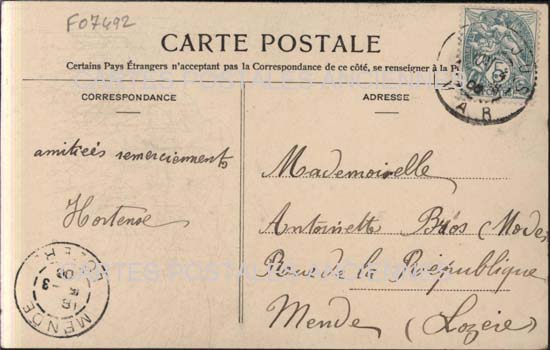 F07492
CARTE POSTALE
Certains Pays Étrangers n'acceptant pas la Correspondance de ce côté, se renseigner à la P
CORRESPONDANCE
ADRESSE
amitiées remerciements
Hortense
Mademoiselle
Antoinette (Modes
Rue de la Republique
Mende (Lozère)
VAR
MENDE
CARTES POSTALES ANCIENNES